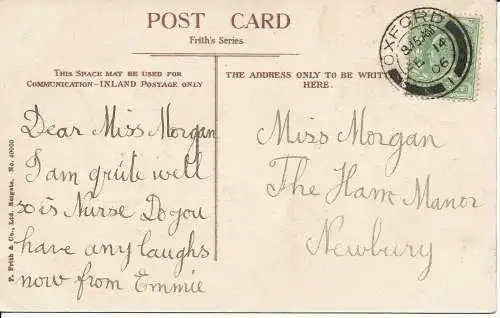 POST CARD
Frith's Series
THIS SPACE MAY BE USED FOR
COMMUNICATION-INLAND POSTAGE ONLY
THE ADDRESS ONLY TO BE WRIT
HERE.
OXFORD
9.15 AM
14
06
1
Dear Miss Morgan
I am quite well
so is Nurse Do you
have any laughs
now from Emmie
Miss Morgan
The Ham Manor
Newbury
F. Frith & Co., Ltd. Reigate. No. 40000